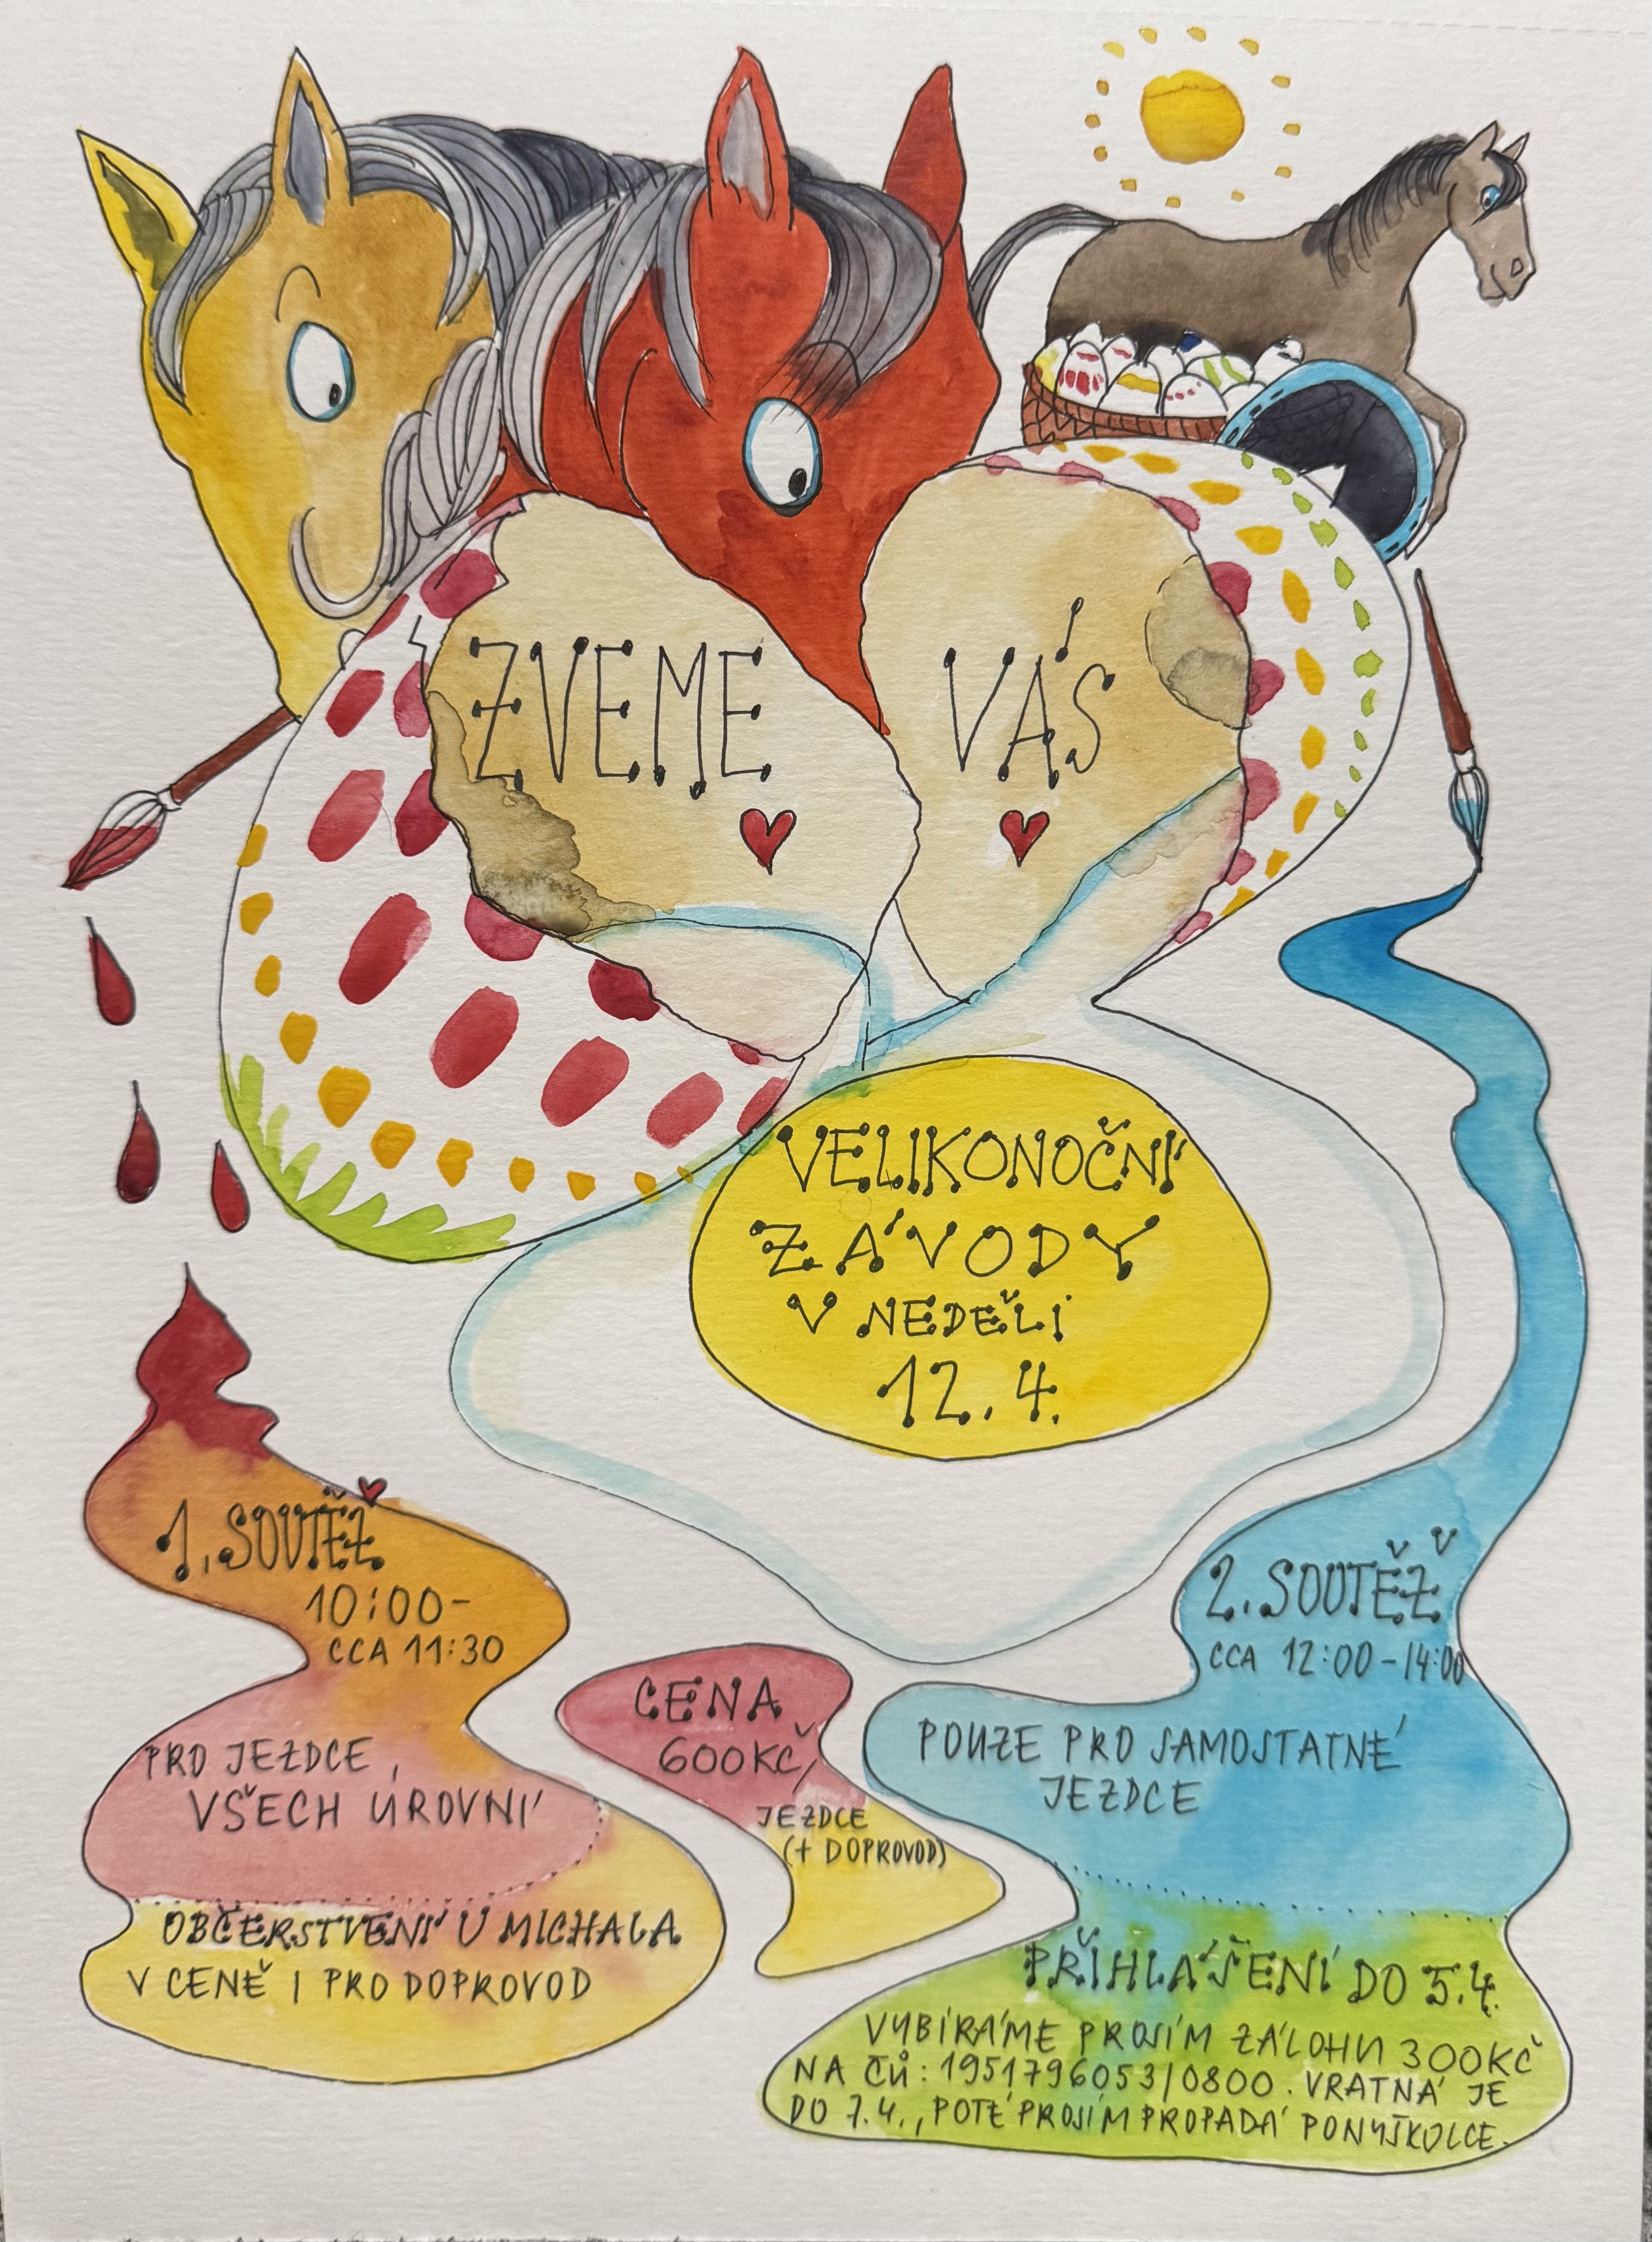 ZVEME VÁS
VELIKONOČNÍ
ZÁVODY
V NEDĚLI
12. 4.
1. SOUTĚŽ
10:00-
CCA 11:30
PRO JEZDCE,
VŠECH ÚROVNÍ
OBČERSTVENÍ U MICHALA
V CENĚ I PRO DOPROVOD
CENA
600KČ/
JEZDCE
(+ DOPROVOD)
2. SOUTĚŽ
CCA 12:00-14:00
POUZE PRO SAMOSTATNÉ
JEZDCE
PŘIHLÁŠENÍ DO 5.4.
VYBÍRÁME PROSÍM ZÁLOHU 300KČ
NA ČÚ: 1951796053/0800. VRATNÁ JE
DO 7.4., POTÉ PROSÍM PROPADÁ PONYŠKOLCE.